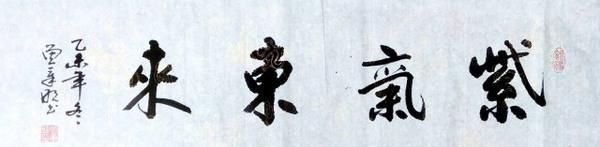 紫氣東來
乙未年冬